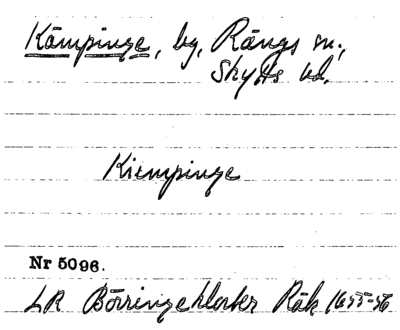 Kämpinge, by, Rängs sn.,
Skytts hd.
Kiempinge
Nr 5096.
LR Börringekloster Räk 1655-56